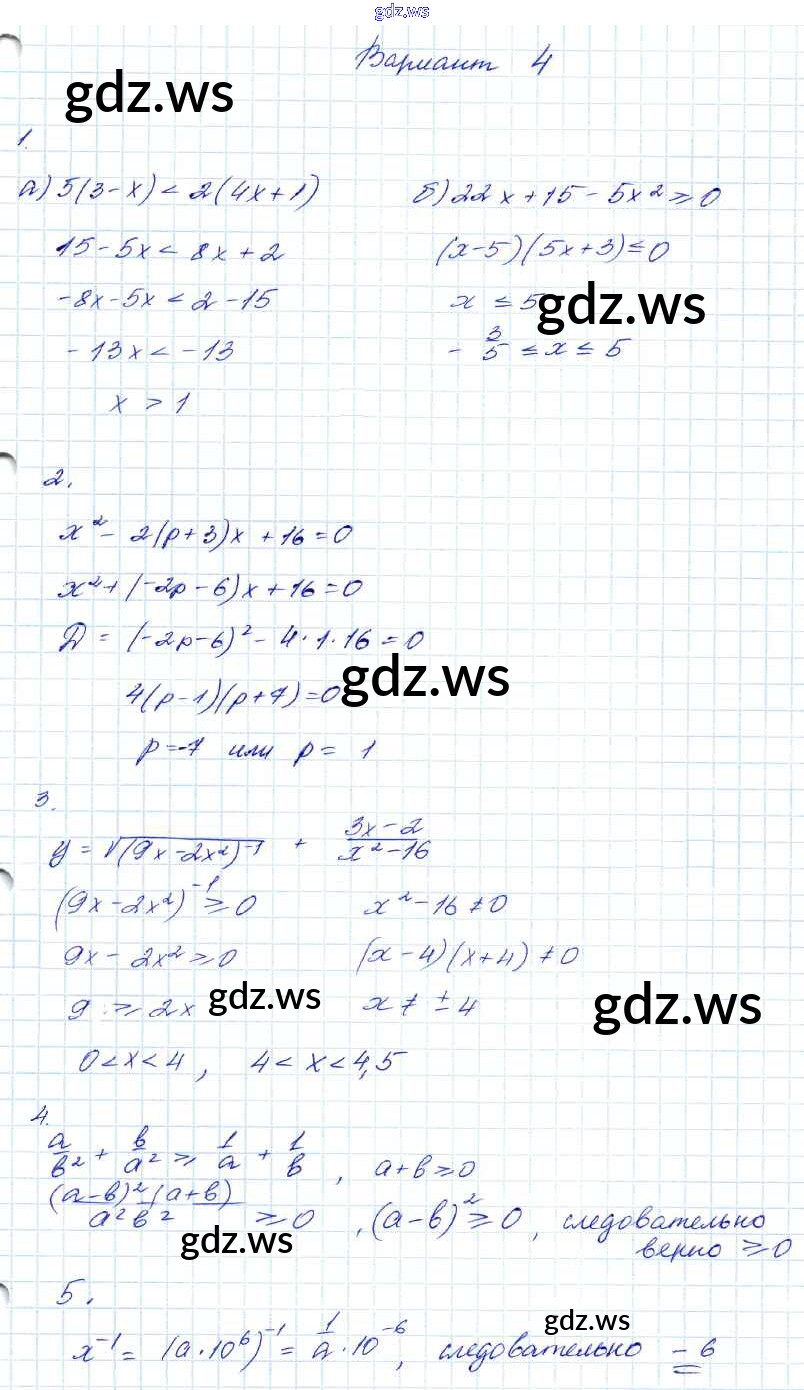 gdz.ws
Вариант 4
gdz.ws
1.
а) 5(3-x) < 2(4x+1)
15 - 5x < 8x + 2
-8x - 5x < 2 - 15
-13x < -13
x > 1
б) 22x + 15 - 5x² ≥ 0
(x-5)(5x+3) ≤ 0
x ≤ 5
gdz.ws
- 3/5 ≤ x ≤ 5
2.
x² - 2(p+3)x + 16 = 0
x² + (-2p-6)x + 16 = 0
D = (-2p-6)² - 4·1·16 = 0
gdz.ws
4(p-1)(p+7) = 0
p = -7 или p = 1
3.
y = √(9x-2x²)⁻¹ + (3x-2)/(x²-16)
(9x-2x²)⁻¹ ≥ 0
9x - 2x² ≥ 0
9 ≥ 2x
gdz.ws
x² - 16 ≠ 0
(x-4)(x+4) ≠ 0
x ≠ ±4
gdz.ws
0 < x < 4, 4 < x < 4,5
4.
a/b² + b/a² ≥ 1/a + 1/b, a+b ≥ 0
(a-b)²(a+b)/a²b² ≥ 0, (a-b)² ≥ 0, следовательно
верно ≥ 0
gdz.ws
5.
gdz.ws
x⁻¹ = (a·10⁶)⁻¹ = 1/a · 10⁻⁶, следовательно -6